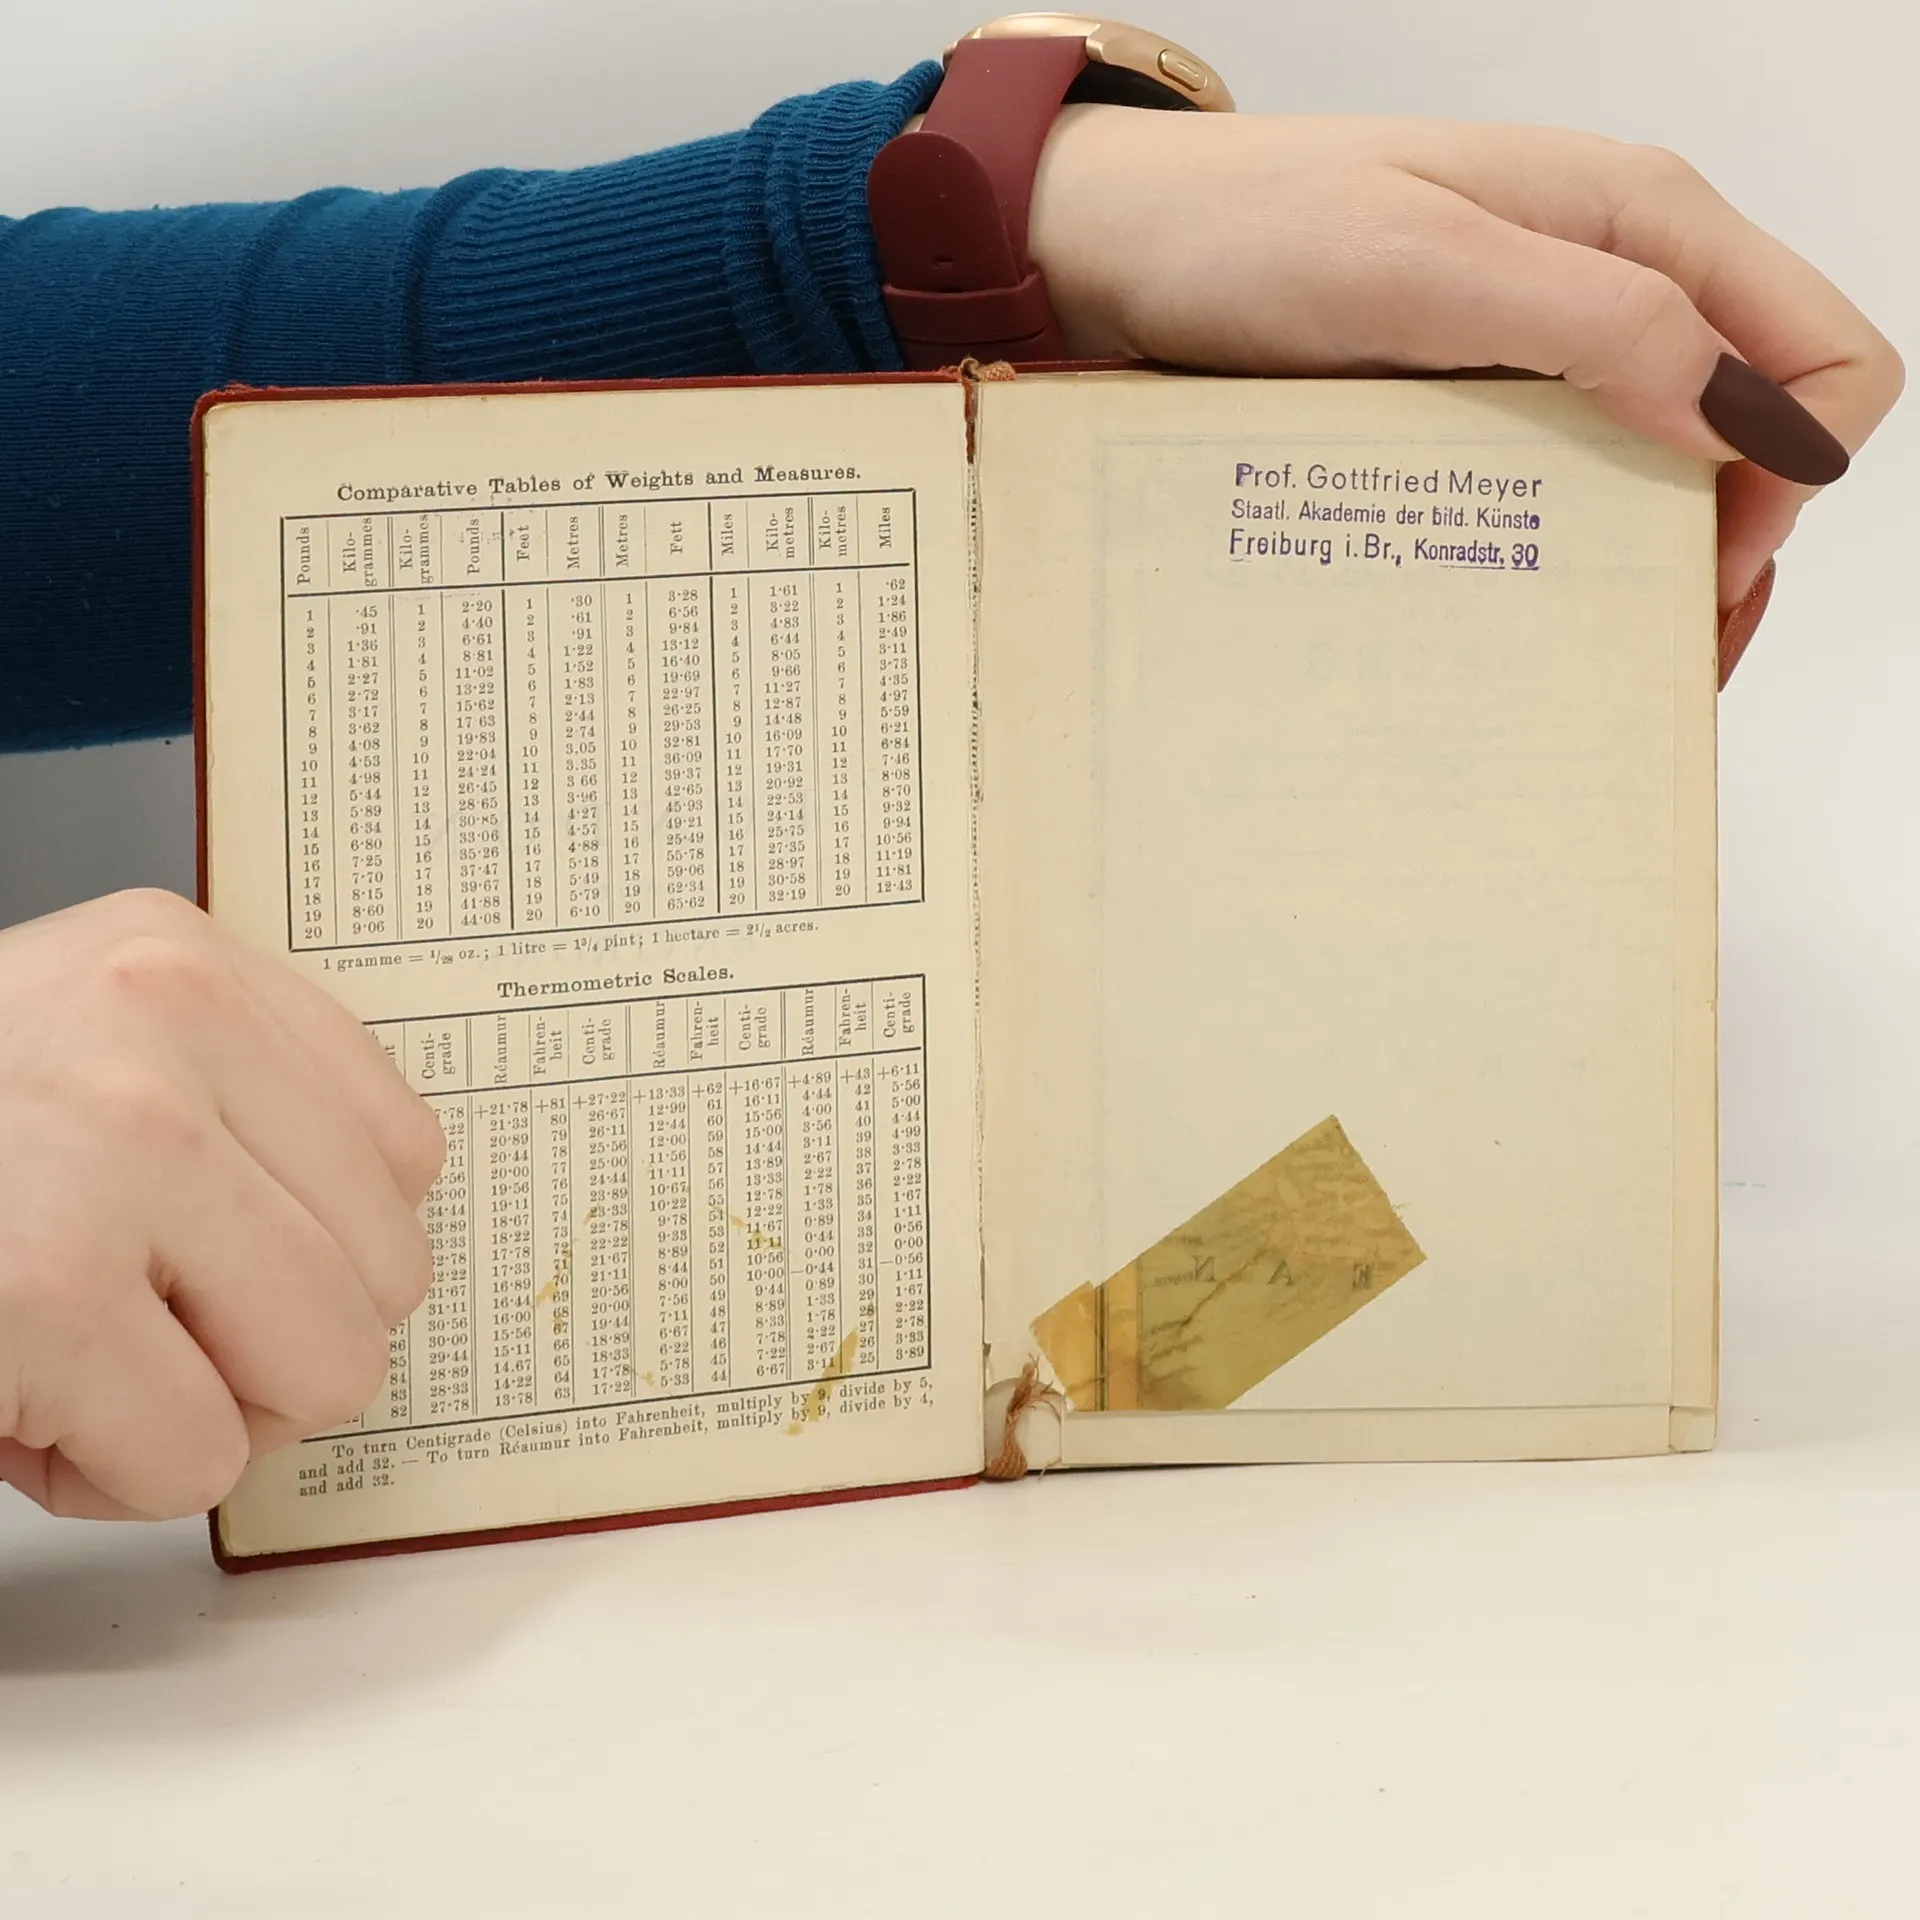 Comparative Tables of Weights and Measures.
Pounds Kilo-grammes Kilo-grammes Pounds Feet Metres Metres Fett Miles Kilo-metres Kilo-metres Miles
1 ·45 1 2·20 1 ·30 1 3·28 1 1·61 1 ·62
2 ·91 2 4·40 2 ·61 2 6·56 2 3·22 2 1·24
3 1·36 3 6·61 3 ·91 3 9·84 3 4·83 3 1·86
4 1·81 4 8·81 4 1·22 4 13·12 4 6·44 4 2·49
5 2·27 5 11·02 5 1·52 5 16·40 5 8·05 5 3·11
6 2·72 6 13·22 6 1·83 6 19·69 6 9·66 6 3·73
7 3·17 7 15·62 7 2·13 7 22·97 7 11·27 7 4·35
8 3·62 8 17 63 8 2·44 8 26·25 8 12·87 8 4·97
9 4·08 9 19·83 9 2·74 9 29·53 9 14·48 9 5·59
10 4·53 10 22·04 10 3.05 10 32·81 10 16·09 10 6·21
11 4·98 11 24·24 11 3.35 11 36·09 11 17·70 11 6·84
12 5·44 12 26·45 12 3 66 12 39·37 12 19·31 12 7·46
13 5·89 13 28·65 13 3·96 13 42·65 13 20·92 13 8·08
14 6·34 14 30·85 14 4·27 14 45·93 14 22·53 14 8·70
15 6·80 15 33·06 15 4·57 15 49·21 15 24·14 15 9·32
16 7·25 16 35·26 16 4·88 16 25·49 16 25·75 16 9·94
17 7·70 17 37·47 17 5·18 17 55·78 17 27·35 17 10·56
18 8·15 18 39·67 18 5·49 18 59·06 18 28·97 18 11·19
19 8·60 19 41·88 19 5·79 19 62·34 19 30·58 19 11·81
20 9·06 20 44·08 20 6·10 20 65·62 20 32·19 20 12·43
1 gramme = 1/28 oz.; 1 litre = 1 3/4 pint; 1 hectare = 2 1/2 acres.
Thermometric Scales.
Centi-grade Réaumur Fahren-heit Centi-grade Réaumur Fahren-heit Centi-grade Réaumur Fahren-heit Centi-grade
7·78 +21·78 +81 +27·22 +13·33 +62 +16·67 +4·89 +43 +6·11
·22 21·33 80 26·67 12·99 61 16·11 4·44 42 5·56
67 20·89 79 26·11 12·44 60 15·56 4·00 41 5·00
·11 20·44 78 25·56 12·00 59 15·00 3·56 40 4·44
5·56 20·00 77 25·00 11·56 58 14·44 3·11 39 4·99
35·00 19·56 76 24·44 11·11 57 13·89 2·67 38 3·33
34·44 19·11 75 23·89 10·67 56 13·33 2·22 37 2·78
33·89 18·67 74 23·33 10·22 55 12·78 1·78 36 2·22
33·33 18·22 73 22·78 9·78 54 12·22 1·33 35 1·67
32·78 17·78 72 22·22 9·33 53 11·67 0·89 34 1·11
32·22 17·33 71 21·67 8·89 52 11·11 0·44 33 0·56
31·67 16·89 70 21·11 8·44 51 10·56 0·00 32 0·00
31·11 16·44 69 20·56 8·00 50 10·00 —0·44 31 —0·56
87 30·56 16·00 68 20·00 7·56 49 9·44 0·89 30 1·11
86 30·00 15·56 67 19·44 7·11 48 8·89 1·33 29 1·67
85 29·44 15·11 66 18·89 6·67 47 8·33 1·78 28 2·22
84 28·89 14.67 65 18·33 6·22 46 7·78 2·22 27 2·78
83 28·33 14·22 64 17·78 5·78 45 7·22 2·67 26 3·33
82 27·78 13·78 63 17·22 5·33 44 6·67 3·11 25 3·89
To turn Centigrade (Celsius) into Fahrenheit, multiply by 9, divide by 5,
and add 32. — To turn Réaumur into Fahrenheit, multiply by 9, divide by 4,
and add 32.
Prof. Gottfried Meyer
Staatl. Akademie der bild. Künste
Freiburg i. Br., Konradstr. 30